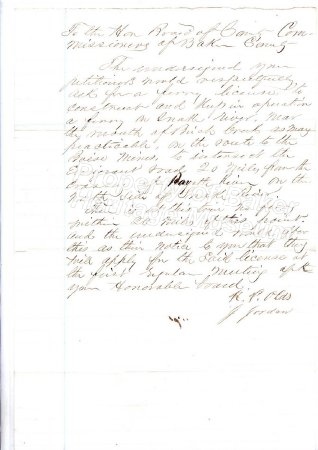 To the Hon Board of Coun Com
missioners of Bak County
The undersigned your
petitioners would respectfully
ask for a ferry license to
construct and Keep in operation
a ferry on Snak River, near
the mouth of Birch Creek as may
practicable, on the route to the
Boise Mines, to
20 Miles, from the
River on the
North Side of Snake River
There is at this time no ferry
with 20 Miles of this point
and the undersigned would offer
this as their Notice to you that they
will apply for the said license at
the first Regular Meeting of
your Honorable board
R. P. Olds
J Jordan